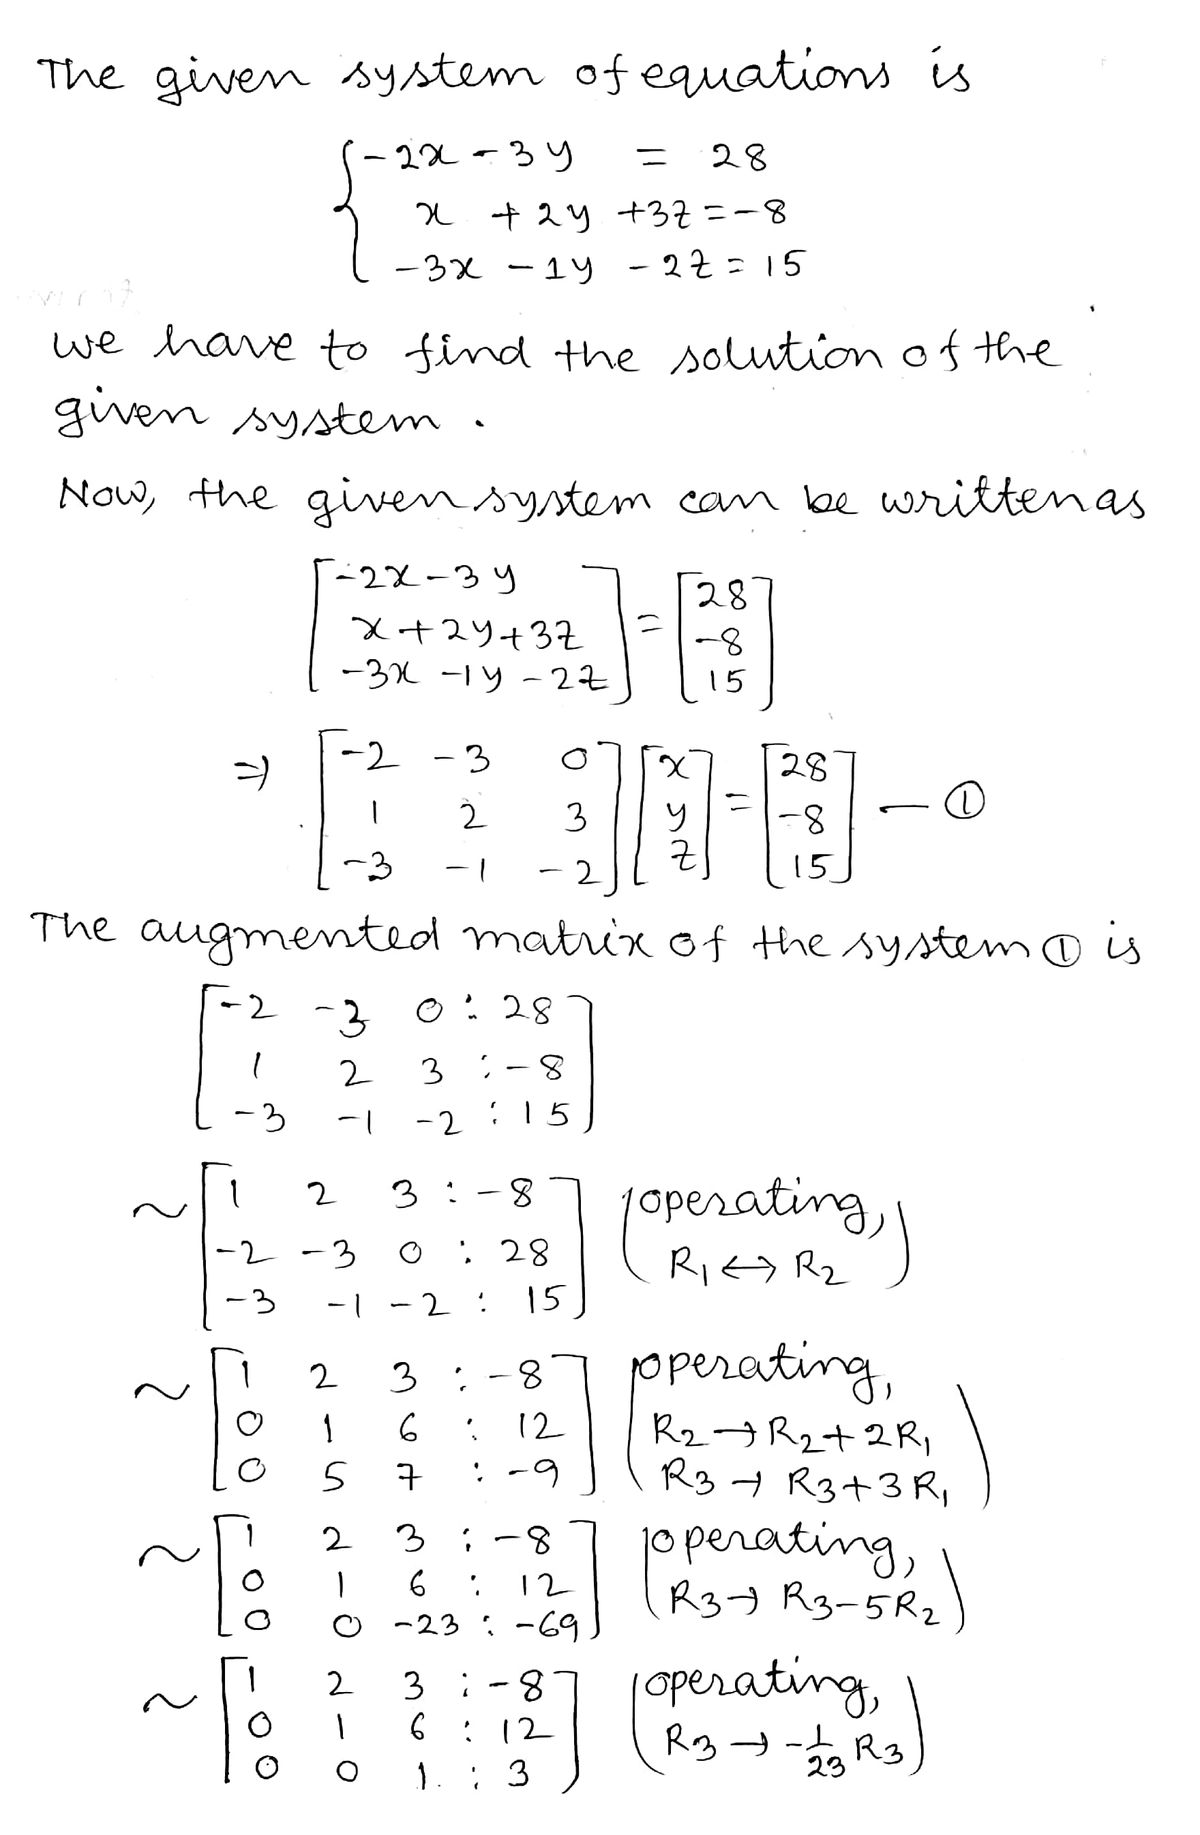 The given system of equations is
{ -2x - 3y = 28
x + 2y + 3z = -8
-3x - 1y - 2z = 15
we have to find the solution of the
given system.
Now, the given system can be written as
[-2x - 3y
x + 2y + 3z
-3x - 1y - 2z] = [28
-8
15]
⇒ [-2 -3 0
1 2 3
-3 -1 -2] [x
y
z] = [28
-8
15] — ①
The augmented matrix of the system ① is
[-2 -3 0 : 28
1 2 3 : -8
-3 -1 -2 : 15]
~ [1 2 3 : -8
-2 -3 0 : 28
-3 -1 -2 : 15] (operating,
R1 ↔ R2)
~ [1 2 3 : -8
0 1 6 : 12
0 5 7 : -9] (operating,
R2 → R2 + 2R1
R3 → R3 + 3R1)
~ [1 2 3 : -8
0 1 6 : 12
0 0 -23 : -69] (operating,
R3 → R3 - 5R2)
~ [1 2 3 : -8
0 1 6 : 12
0 0 1 : 3] (operating,
R3 → -1/23 R3)